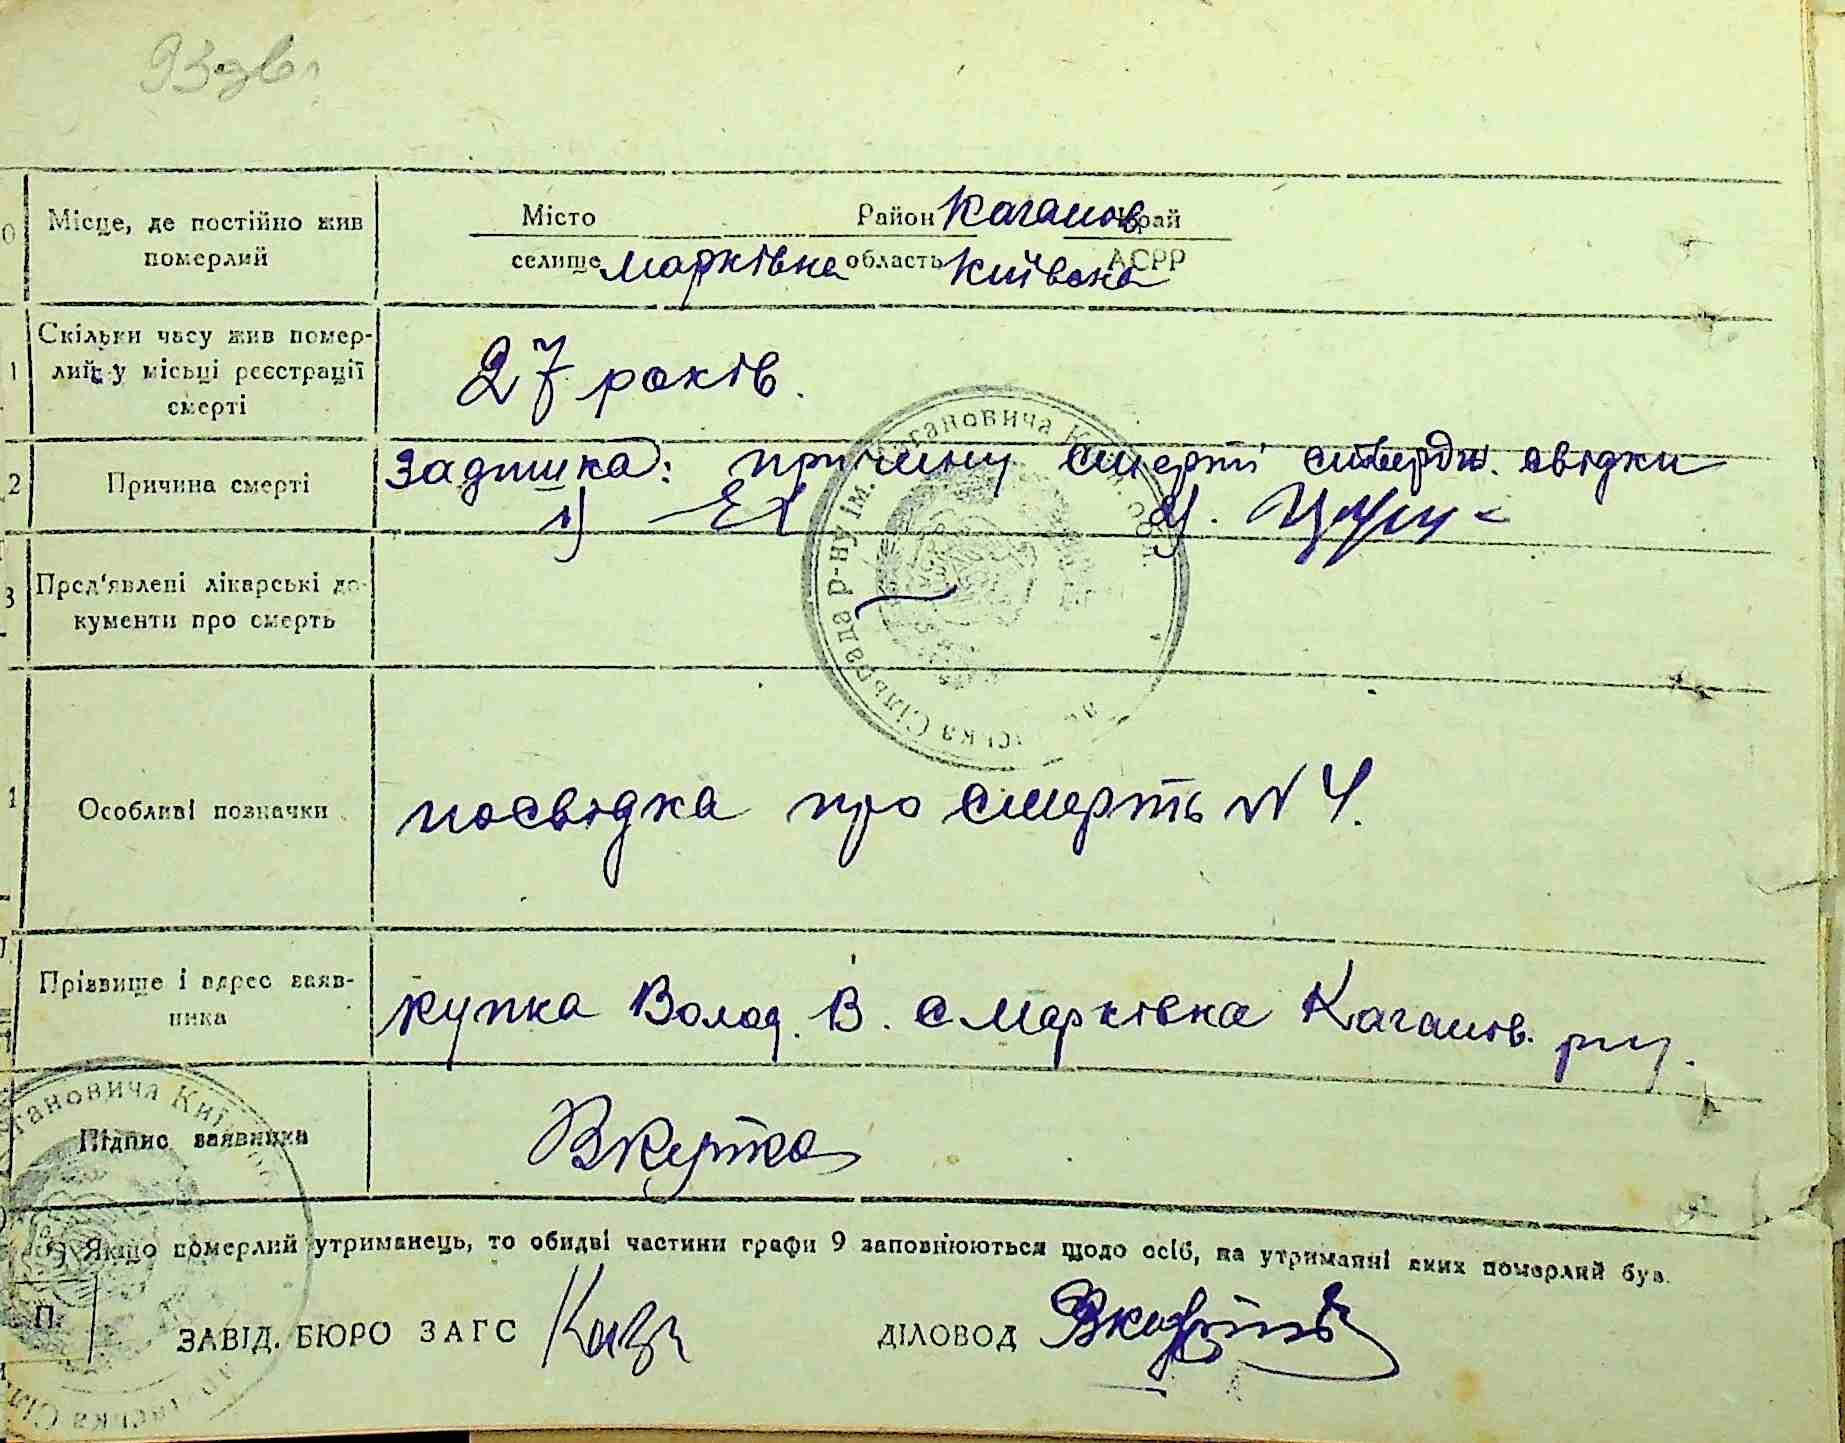 93 зв.
0 Місце, де постійно жив померлий
Місто Район Каганов Край
селище Марківка область Київска АСРР
1 Скільки часу жив помер-
лий у місьці реєстрації
смерті
27 років.
2 Причина смерті
Задишка: причину смерті ствердж. свідки
1) 2).
3 Пред'явлені лікарські до-
кументи про смерть
—
Особливі позначки
посвідка про смерть N 4.
Прізвище і адрес заяв-
ника
Купка Волод. В. с Марківка Каганов. р-ну.
Підпис заявника
ВКупка
Якщо померлий утриманець, то обидві частини графи 9 заповнюються щодо осіб, на утриманні яких померлий був.
П.
ЗАВІД. БЮРО ЗАГС ДІЛОВОД
Сільрада р-ну ім. Кагановича Київ. обл.
гановича Київ